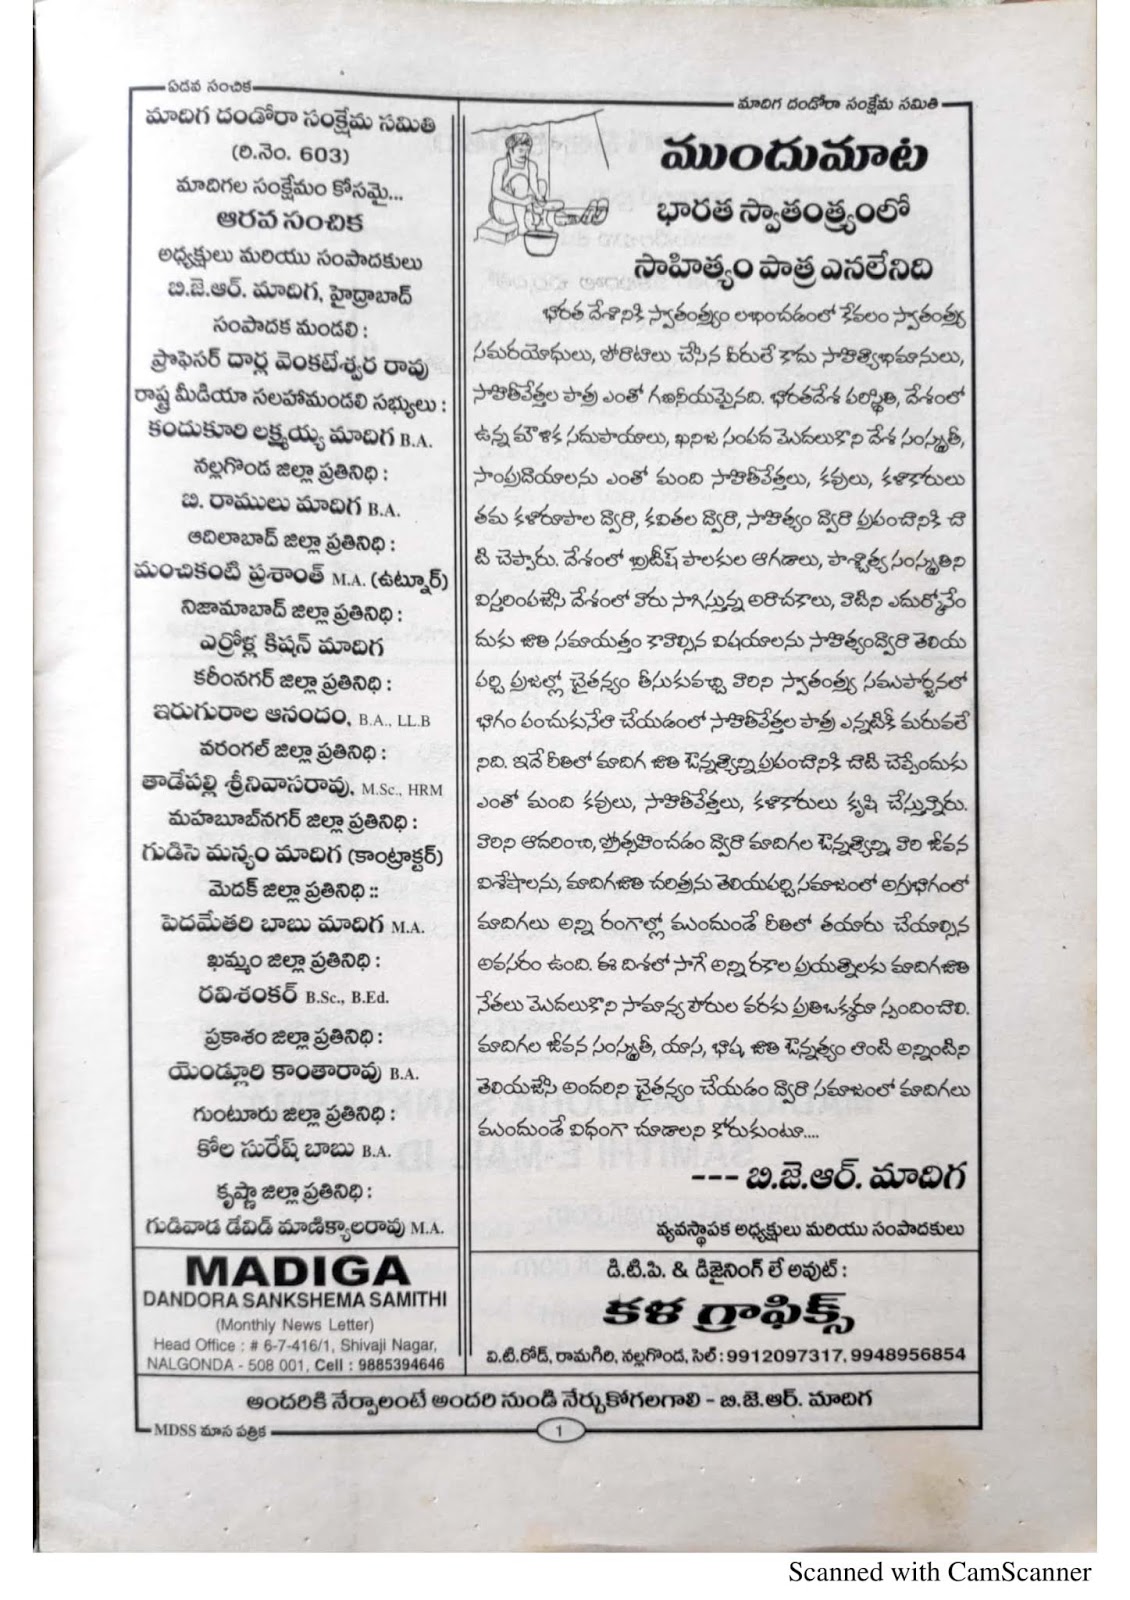 ఏడవ సంచిక
మాదిగ దండోరా సంక్షేమ సమితి
మాదిగ దండోరా సంక్షేమ సమితి
(రి.నెం. 603)
మాదిగల సంక్షేమం కోసమై...
ఆరవ సంచిక
అధ్యక్షులు మరియు సంపాదకులు
బి.జె.ఆర్. మాదిగ, హైద్రాబాద్
సంపాదక మండలి :
ప్రొఫెసర్ దార్ల వెంకటేశ్వర రావు
రాష్ట్ర మీడియా సలహామండలి సభ్యులు :
కందుకూరి లక్ష్మయ్య మాదిగ B.A.
నల్లగొండ జిల్లా ప్రతినిధి :
బి. రాములు మాదిగ B.A.
ఆదిలాబాద్ జిల్లా ప్రతినిధి :
మంచికంటి ప్రశాంత్ M.A. (ఉట్నూర్)
నిజామాబాద్ జిల్లా ప్రతినిధి :
ఎర్రోళ్ల కిషన్ మాదిగ
కరీంనగర్ జిల్లా ప్రతినిధి :
ఇరుగురాల ఆనందం, B.A., LL.B
వరంగల్ జిల్లా ప్రతినిధి :
తాడేపల్లి శ్రీనివాసరావు, M.Sc., HRM
మహబూబ్‌నగర్ జిల్లా ప్రతినిధి :
గుడిసె మన్యం మాదిగ (కాంట్రాక్టర్)
మెదక్ జిల్లా ప్రతినిధి ::
పెదమేతరి బాబు మాదిగ M.A.
ఖమ్మం జిల్లా ప్రతినిధి :
రవిశంకర్ B.Sc., B.Ed.
ప్రకాశం జిల్లా ప్రతినిధి :
యెండ్లూరి కాంతారావు B.A.
గుంటూరు జిల్లా ప్రతినిధి :
కోల సురేష్ బాబు B.A.
కృష్ణా జిల్లా ప్రతినిధి :
గుడివాడ డేవిడ్ మాణిక్యాలరావు M.A.
MADIGA
DANDORA SANKSHEMA SAMITHI
(Monthly News Letter)
Head Office : # 6-7-416/1, Shivaji Nagar,
NALGONDA - 508 001, Cell : 9885394646
ముందుమాట
భారత స్వాతంత్ర్యంలో
సాహిత్యం పాత్ర ఎనలేనిది
భారత దేశానికి స్వాతంత్ర్యం లభించడంలో కేవలం స్వాతంత్ర్య
సమరయోధులు, పోరాటాలు చేసిన వీరులే కాదు సాహిత్యాభిమానులు,
సాహితీవేత్తల పాత్ర ఎంతో గణనీయమైనది. భారతదేశ పరిస్థితి, దేశంలో
ఉన్న మౌళిక సదుపాయాలు, ఖనిజ సంపద మొదలుకొని దేశ సంస్కృతీ,
సాంప్రదాయాలను ఎంతో మంది సాహితీవేత్తలు, కవులు, కళాకారులు
తమ కళారూపాల ద్వారా, కవితల ద్వారా, సాహిత్యం ద్వారా ప్రపంచానికి చా
టి చెప్పారు. దేశంలో బ్రిటీష్ పాలకుల ఆగడాలు, పాశ్చాత్య సంస్కృతిని
విస్తరింపజేసి దేశంలో వారు సాగిస్తున్న అరాచకాలు, వాటిని ఎదుర్కోనేం
దుకు జాతి సమాయత్తం కావాల్సిన విషయాలను సాహిత్యంద్వారా తెలియ
పర్చి ప్రజల్లో చైతన్యం తీసుకువచ్చి వారిని స్వాతంత్ర్య సముపార్జనలో
భాగం పంచుకునేలా చేయడంలో సాహితీవేత్తల పాత్ర ఎన్నటికీ మరువలే
నిది. ఇదే రీతిలో మాదిగ జాతి ఔన్నత్యాన్ని ప్రపంచానికి చాటి చెప్పేందుకు
ఎంతో మంది కవులు, సాహితీవేత్తలు, కళాకారులు కృషి చేస్తున్నారు.
వారిని ఆదరించి, ప్రోత్సహించడం ద్వారా మాదిగల ఔన్నత్యాన్ని, వారి జీవన
విశేషాలను, మాదిగజాతి చరిత్రను తెలియపర్చి సమాజంలో అగ్రభాగంలో
మాదిగలు అన్ని రంగాల్లో ముందుండే రీతిలో తయారు చేయాల్సిన
అవసరం ఉంది. ఈ దిశలో సాగే అన్ని రకాల ప్రయత్నాలకు మాదిగజాతి
నేతలు మొదలుకొని సామాన్య పౌరుల వరకు ప్రతిఒక్కరూ స్పందించాలి.
మాదిగల జీవన సంస్కృతీ, యాస, భాష, జాతి ఔన్నత్యం లాంటి అన్నింటిని
తెలియజేసి అందరిని చైతన్యం చేయడం ద్వారా సమాజంలో మాదిగలు
ముందుండే విధంగా చూడాలని కోరుకుంటూ....
--- బి.జె.ఆర్. మాదిగ
వ్యవస్థాపక అధ్యక్షులు మరియు సంపాదకులు
డి.టి.పి. & డిజైనింగ్ లే అవుట్ :
కళ గ్రాఫిక్స్
వి.టి.రోడ్, రామగిరి, నల్లగొండ, సెల్ : 9912097317, 9948956854
అందరికి నేర్పాలంటే అందరి నుండి నేర్చుకోగలగాలి - బి.జె.ఆర్. మాదిగ
MDSS మాస పత్రిక
1
Scanned with CamScanner